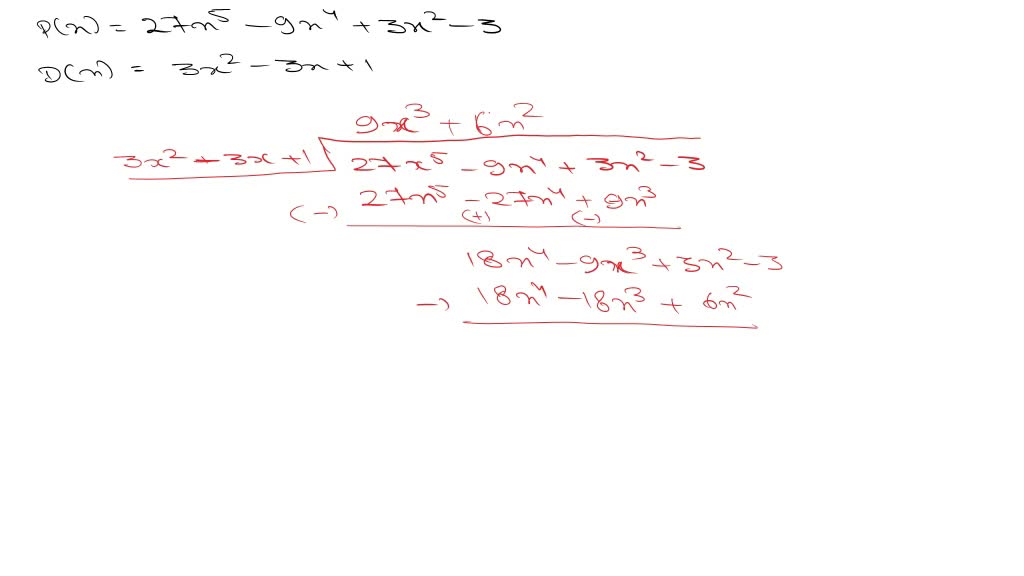 P(x) = 27x⁵ - 9x⁴ + 3x² - 3
D(x) = 3x² - 3x + 1
9x³ + 6x²
3x² - 3x + 1 27x⁵ - 9x⁴ + 3x² - 3
27x⁵ - 27x⁴ + 9x³
(-) (+) (-)
18x⁴ - 9x³ + 3x² - 3
-) 18x⁴ - 18x³ + 6x²